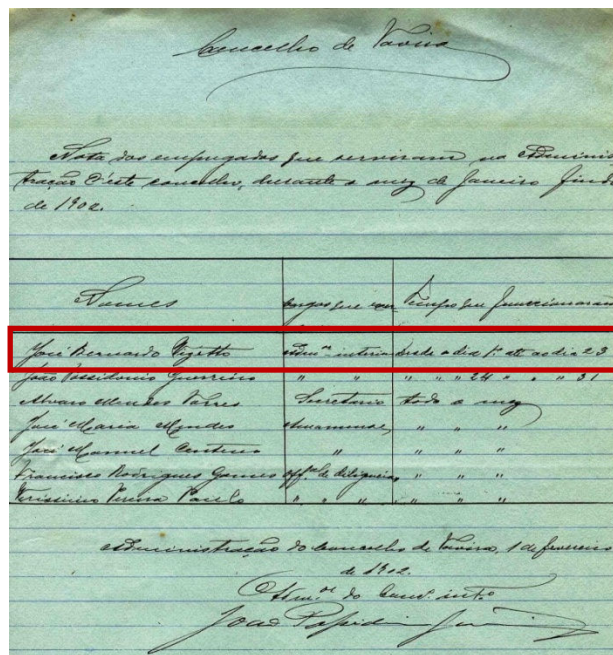 Concelho de Tavira
Nota dos empregados que serviram na Adminis
tração d'este concelho, durante o mez de Janeiro findo
de 1902.
Nomes cargos que Tempo que funccionaram
José Bernardo Vizetto Adm.or interino desde o dia 1.º até ao dia 23
João Possidonio Guerreiro " " " " " 24 " " " 31
Alvaro Mendes Torres Secretario todo o mez
José Maria Mendes Amanuense, " " "
José Manuel Centeno " " " "
Francisco Rodrigues Gomes Off.al de diligencias " " "
Verissimo Pereira Paulo " " " " " "
Administração do Concelho de Tavira, 1 de fevereiro
de 1902.
O Adm.or do Conc.º int.º
João